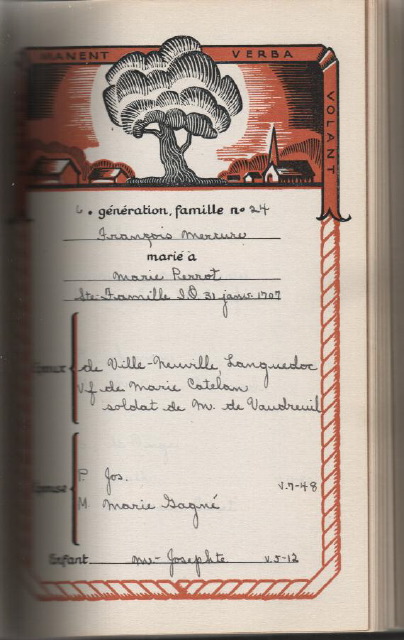 MANENT VERBA VOLANT
6e génération, famille no 24
François Mercure
marié à
Marie Perrot
Ste-Famille I.O. 31 janv. 1707
de Ville-Neuville, Languedoc
vf. de Marie Catelan
soldat de M. de Vaudreuil
P. Jos. v.7-48
M. Marie Gagné
Enfant m.- Josephte v.5-12